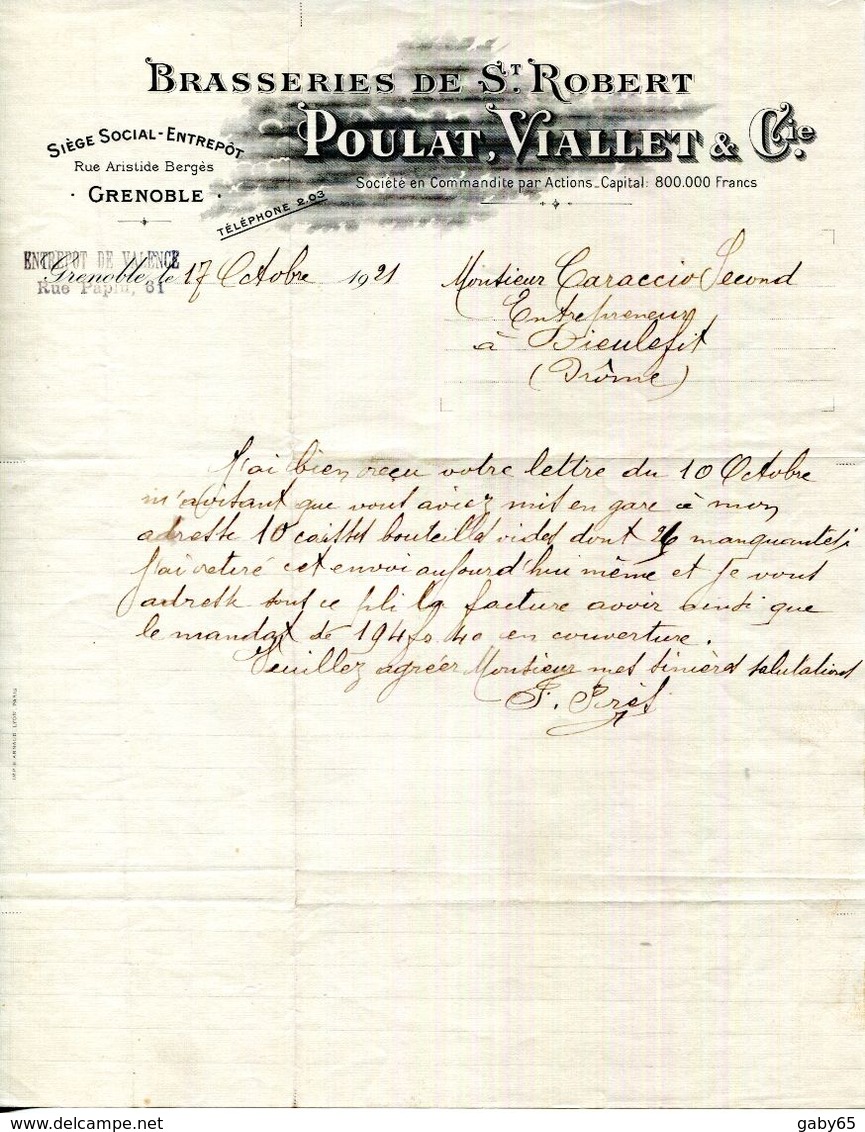 BRASSERIES DE ST. ROBERT
POULAT, VIALLET & Cie.
Société en Commandite par Actions_Capital: 800.000 Francs
SIÈGE SOCIAL-ENTREPÔT
Rue Aristide Bergès
· GRENOBLE ·
TÉLÉPHONE 2.03
ENTREPOT DE VALENCE
Rue Papin, 61
Grenoble le 17 Octobre 1921
Monsieur Caraccio Second
Entrepreneur
à Dieulefit
(Drôme)
J'ai bien reçu votre lettre du 10 Octobre
m'avisant que vous aviez mis en gare à mon
adresse 10 caisses bouteilles vides dont 26 manquantes.
J'ai retiré cet envoi aujourd'hui même et je vous
adresse sous ce pli la facture avoir ainsi que
le mandat de 194 frs 40 en couverture.
Veuillez agréer Monsieur mes sincères salutations
delcampe.net
gaby65